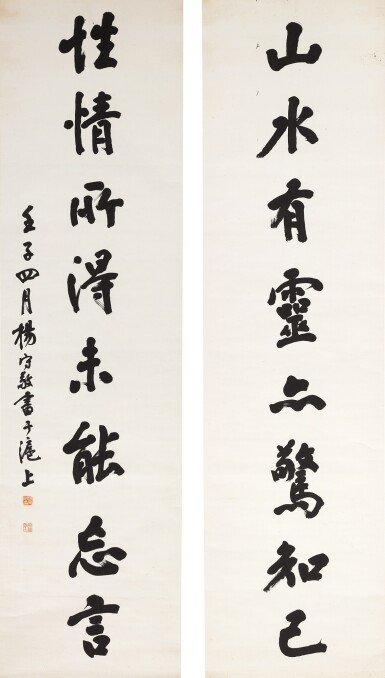 山水有靈亦驚知己
性情所得未能忘言
壬子四月楊守敬書于滬上